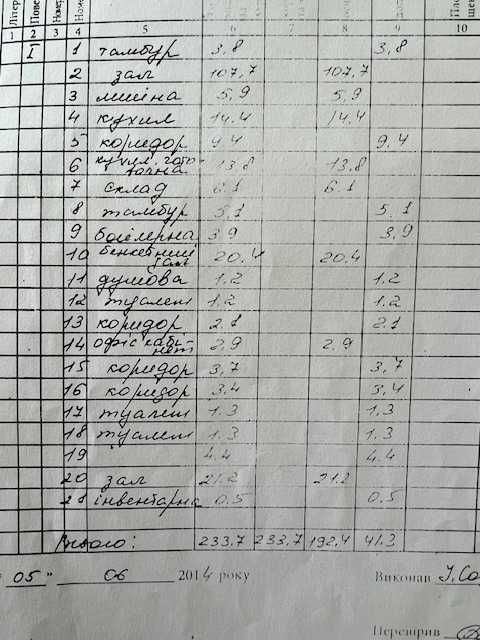 Літер
Номер
1 2 3 4 5 6 7 8 9 10
I 1 тамбур 3,8 3,8
2 зал 107,7 107,7
3 мийна 5,9 5,9
4 кухня 14.4 14.4
5 коридор 9.4 9.4
6 кухня, гото-
вочна 13.8 13.8
7 склад 6.1 6.1
8 тамбур 5,1 5.1
9 бойлерна 3.9 3,9
10 бенкетний
зал 20.4 20.4
11 душова 1.2 1.2
12 туалет 1,2 1.2
13 коридор 2.1 2.1
14 офіс кабі-
нет 2,9 2.9
15 коридор 3,7 3,7
16 коридор 3,4 3,4
17 туалет 1.3 1.3
18 туалет 1.3 1.3
19 4.4 4.4
20 зал 21.2 21.2
21 інвентарна 0.5 0.5
Всього: 233,7 233,7 192,4 41,3
05 " 06 2014 року Виконав
Перевірив